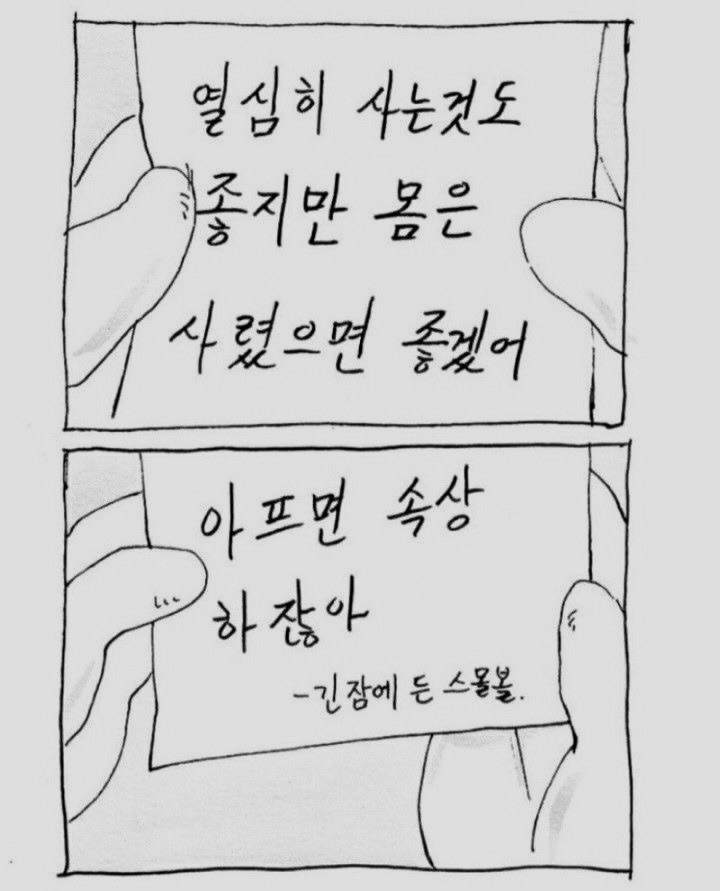 열심히 사는것도
좋지만 몸은
사렸으면 좋겠어
아프면 속상
하잖아
-긴잠에 든 스몰볼.